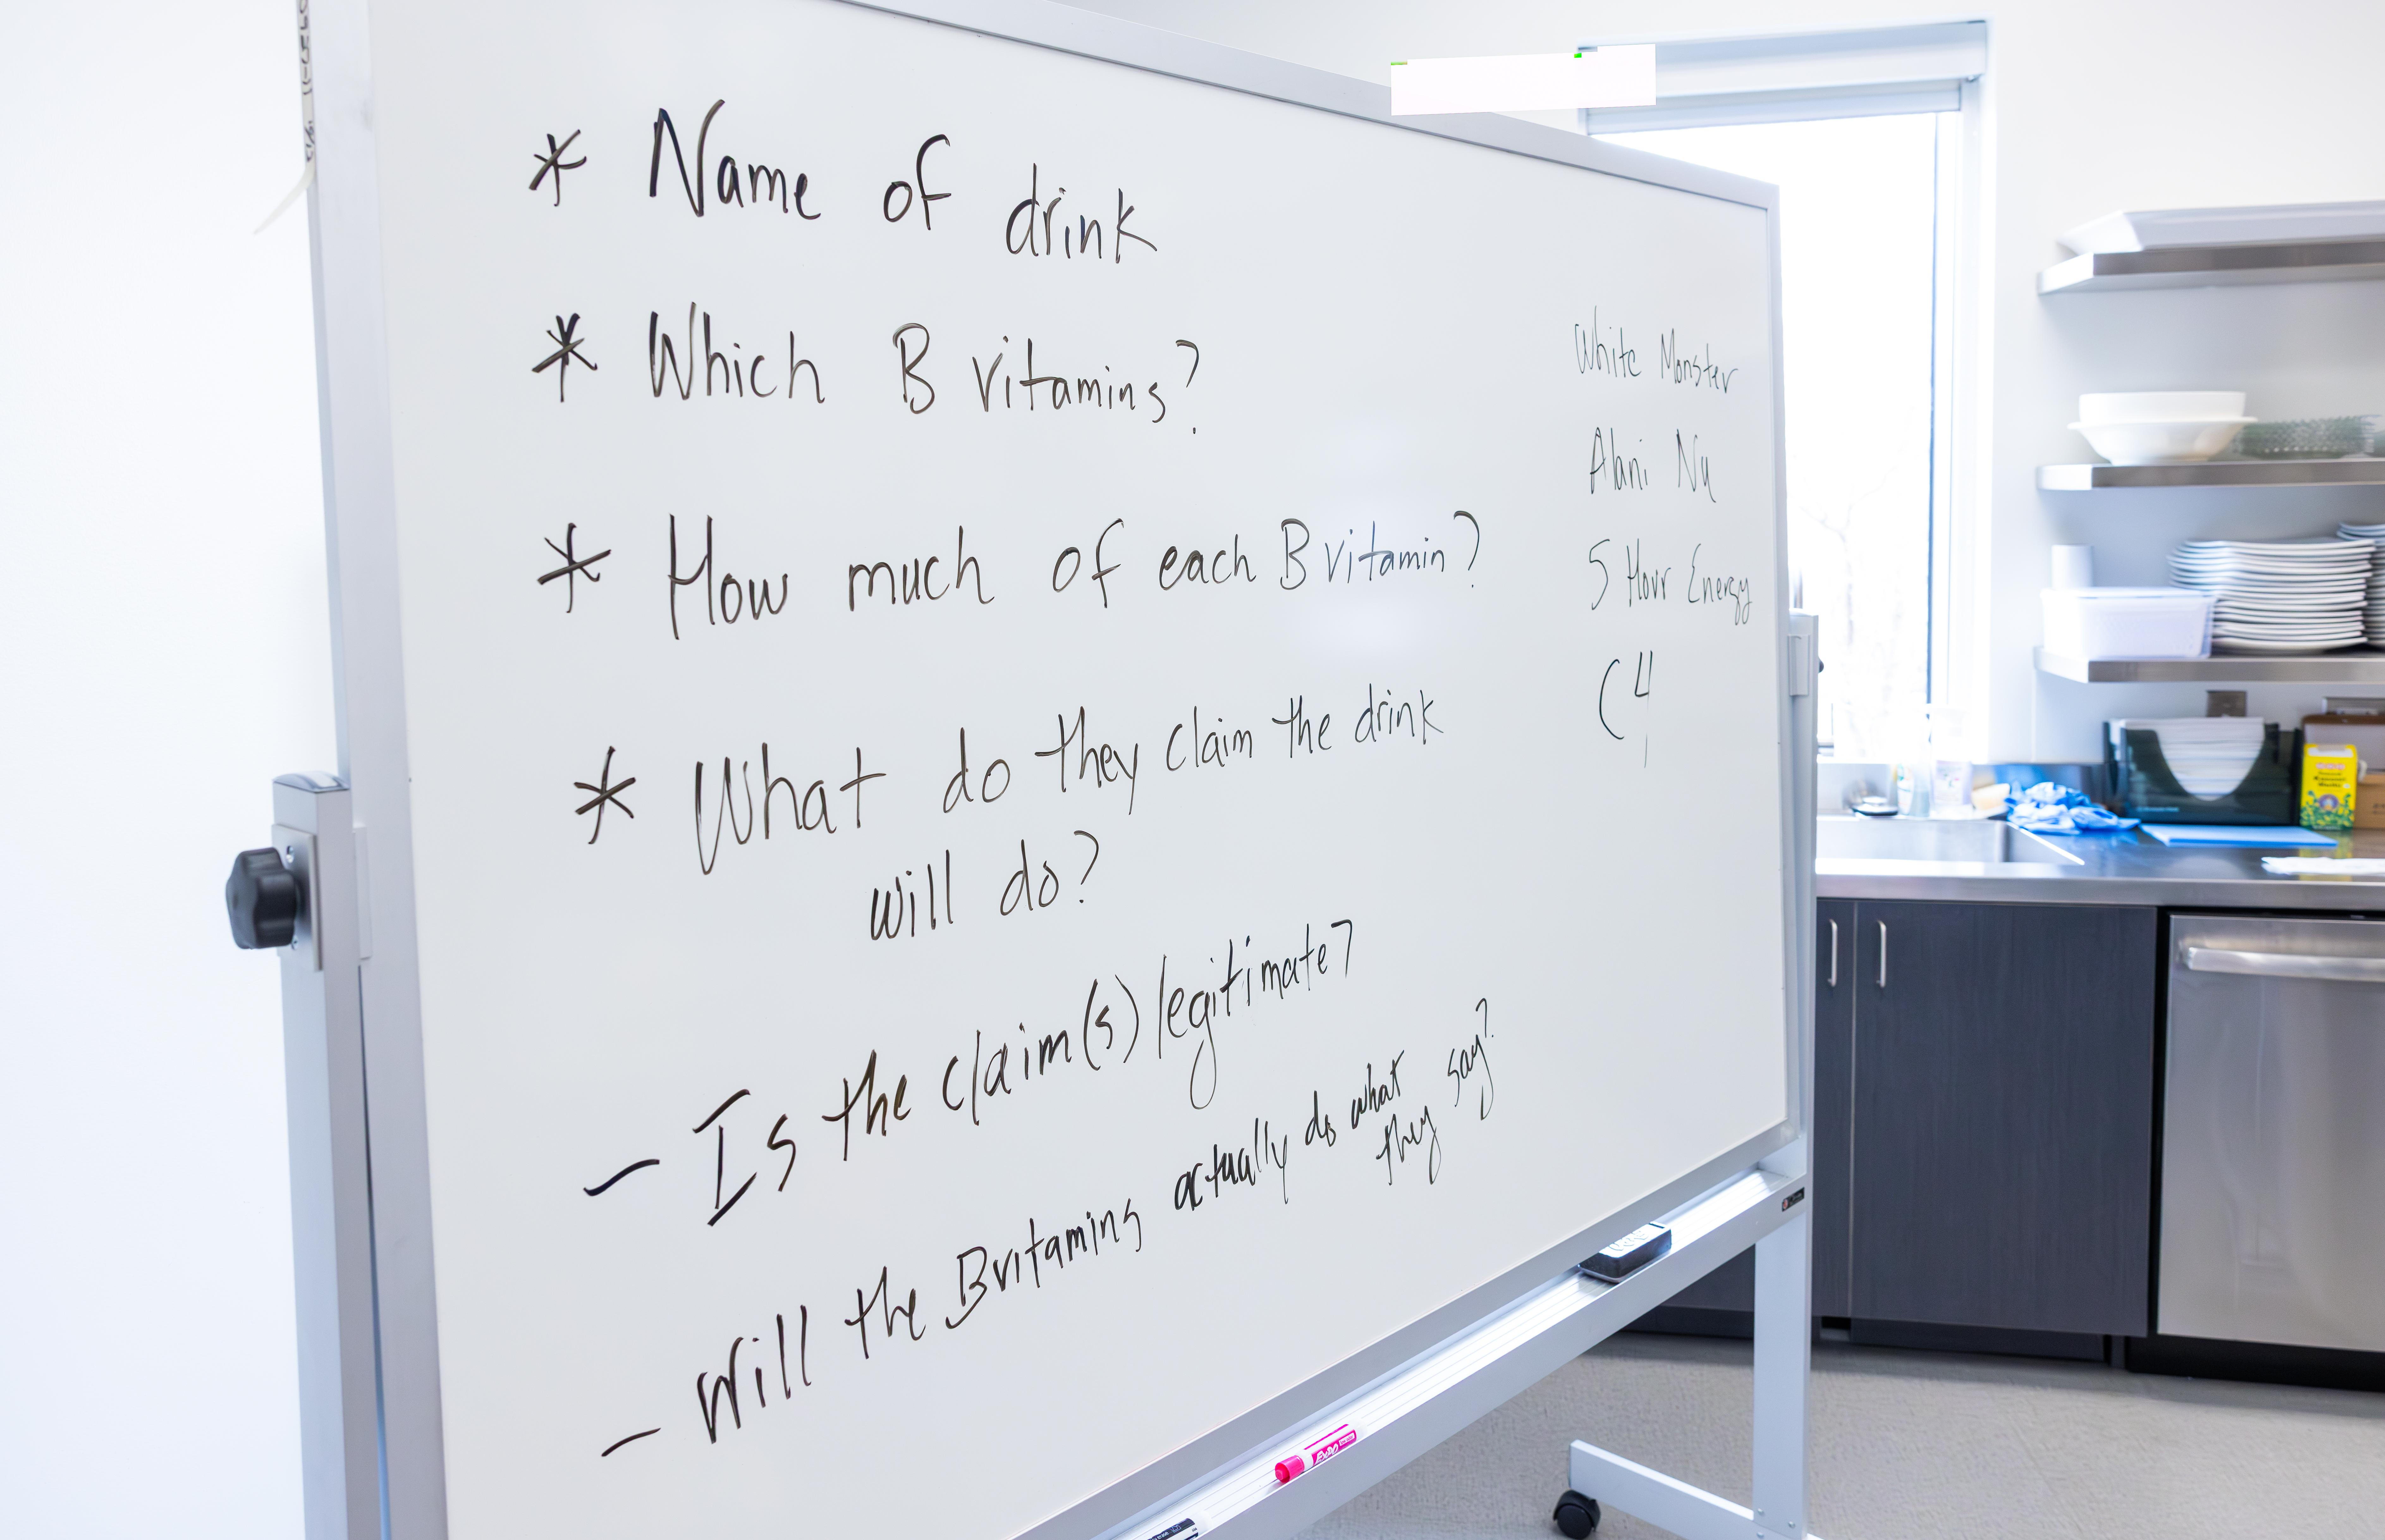 * Name of drink
* Which B vitamins?
* How much of each B vitamin?
* What do they claim the drink
will do?
- Is the claim(s) legitimate?
- Will the B vitamins actually do what
they say?
White Monster
Alani Nu
5 Hour Energy
C4
EXPO